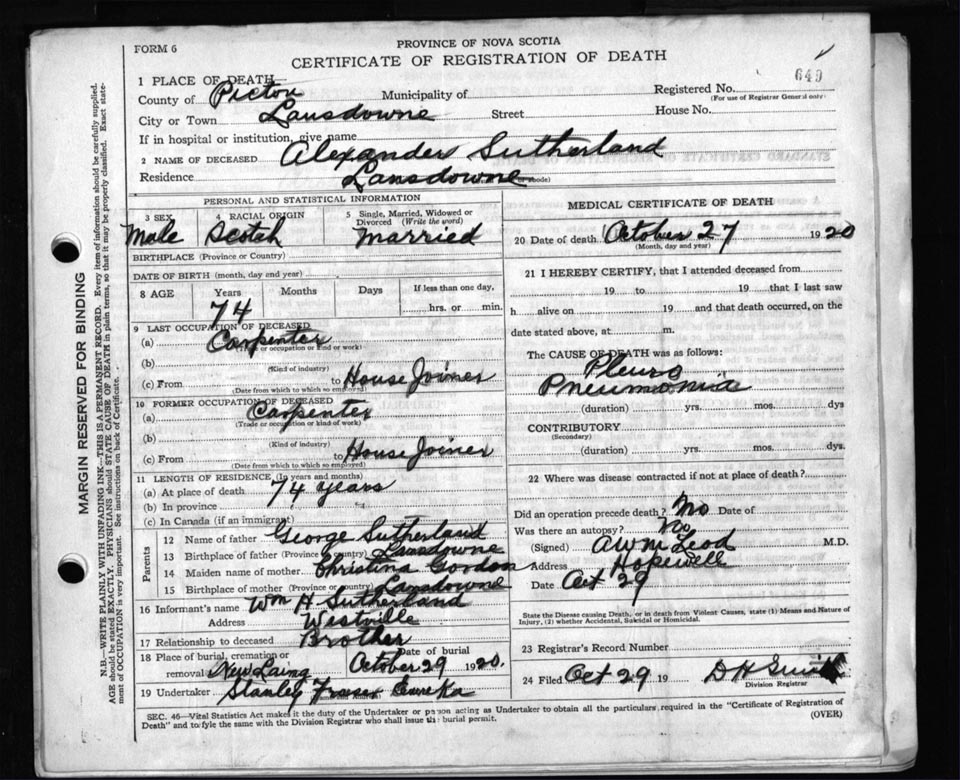 FORM 6
PROVINCE OF NOVA SCOTIA
CERTIFICATE OF REGISTRATION OF DEATH
649
1 PLACE OF DEATH
County of Pictou Municipality of
Registered No.
(For use of Registrar General only)
City or Town Lansdowne Street House No.
If in hospital or institution, give name
2 NAME OF DECEASED Alexander Sutherland
Residence Lansdowne
PERSONAL AND STATISTICAL INFORMATION
3 SEX Male
4 RACIAL ORIGIN Scotch
5 Single, Married, Widowed or Divorced (Write the word) Married
BIRTHPLACE (Province or Country)
DATE OF BIRTH (month, day and year)
8 AGE Years Months Days If less than one day,
74 hrs. or min.
9 LAST OCCUPATION OF DECEASED
(a) Carpenter
(Trade or occupation or kind of work)
(b)
(Kind of industry)
(c) From to House Joiner
(Date from which to which so employed)
10 FORMER OCCUPATION OF DECEASED
(a) Carpenter
(Trade or occupation or kind of work)
(b)
(Kind of industry)
(c) From to House Joiner
(Date from which to which so employed)
11 LENGTH OF RESIDENCE (In years and months)
(a) At place of death 74 years
(b) In province
(c) In Canada (if an immigrant)
Parents
12 Name of father George Sutherland
13 Birthplace of father (Province or Country) Lansdowne
14 Maiden name of mother Christina Gordon
15 Birthplace of mother (Province or country) Lansdowne
16 Informant's name Wm H Sutherland
Address Westville
17 Relationship to deceased Brother
18 Place of burial, cremation or removal New Laing
Date of burial October 29 1920.
19 Undertaker Stanley Fraser Eureka
MEDICAL CERTIFICATE OF DEATH
20 Date of death October 27 1920
(Month, day and year)
21 I HEREBY CERTIFY, that I attended deceased from
19 to 19 that I last saw
h alive on 19 and that death occurred, on the
date stated above, at m.
The CAUSE OF DEATH was as follows:
Pleuro
(duration) yrs. mos. dys
CONTRIBUTORY
(Secondary)
(duration) yrs. mos. dys.
22 Where was disease contracted if not at place of death?
Did an operation precede death? No Date of
Was there an autopsy? No
(Signed) A W McLeod M.D.
Address Hopewell
Date Oct 29
State the Disease causing Death, or in death from Violent Causes, state (1) Means and Nature of
Injury, (2) whether Accidental, Suicidal or Homicidal.
23 Registrar's Record Number
24 Filed Oct 29 19 D H
Division Registrar
SEC. 46—Vital Statistics Act makes it the duty of the Undertaker or person acting as Undertaker to obtain all the particulars required in the "Certificate of Registration of
Death" and to fyle the same with the Division Registrar who shall issue the burial permit.
(OVER)
MARGIN RESERVED FOR BINDING
N.B.—WRITE PLAINLY WITH UNFADING INK—THIS IS A PERMANENT RECORD. Every item of information should be carefully supplied.
AGE should be stated EXACTLY. PHYSICIANS should STATE CAUSE OF DEATH in plain terms, so that it may be properly classified. Exact statement
of OCCUPATION is very important. See instructions on back of Certificate.